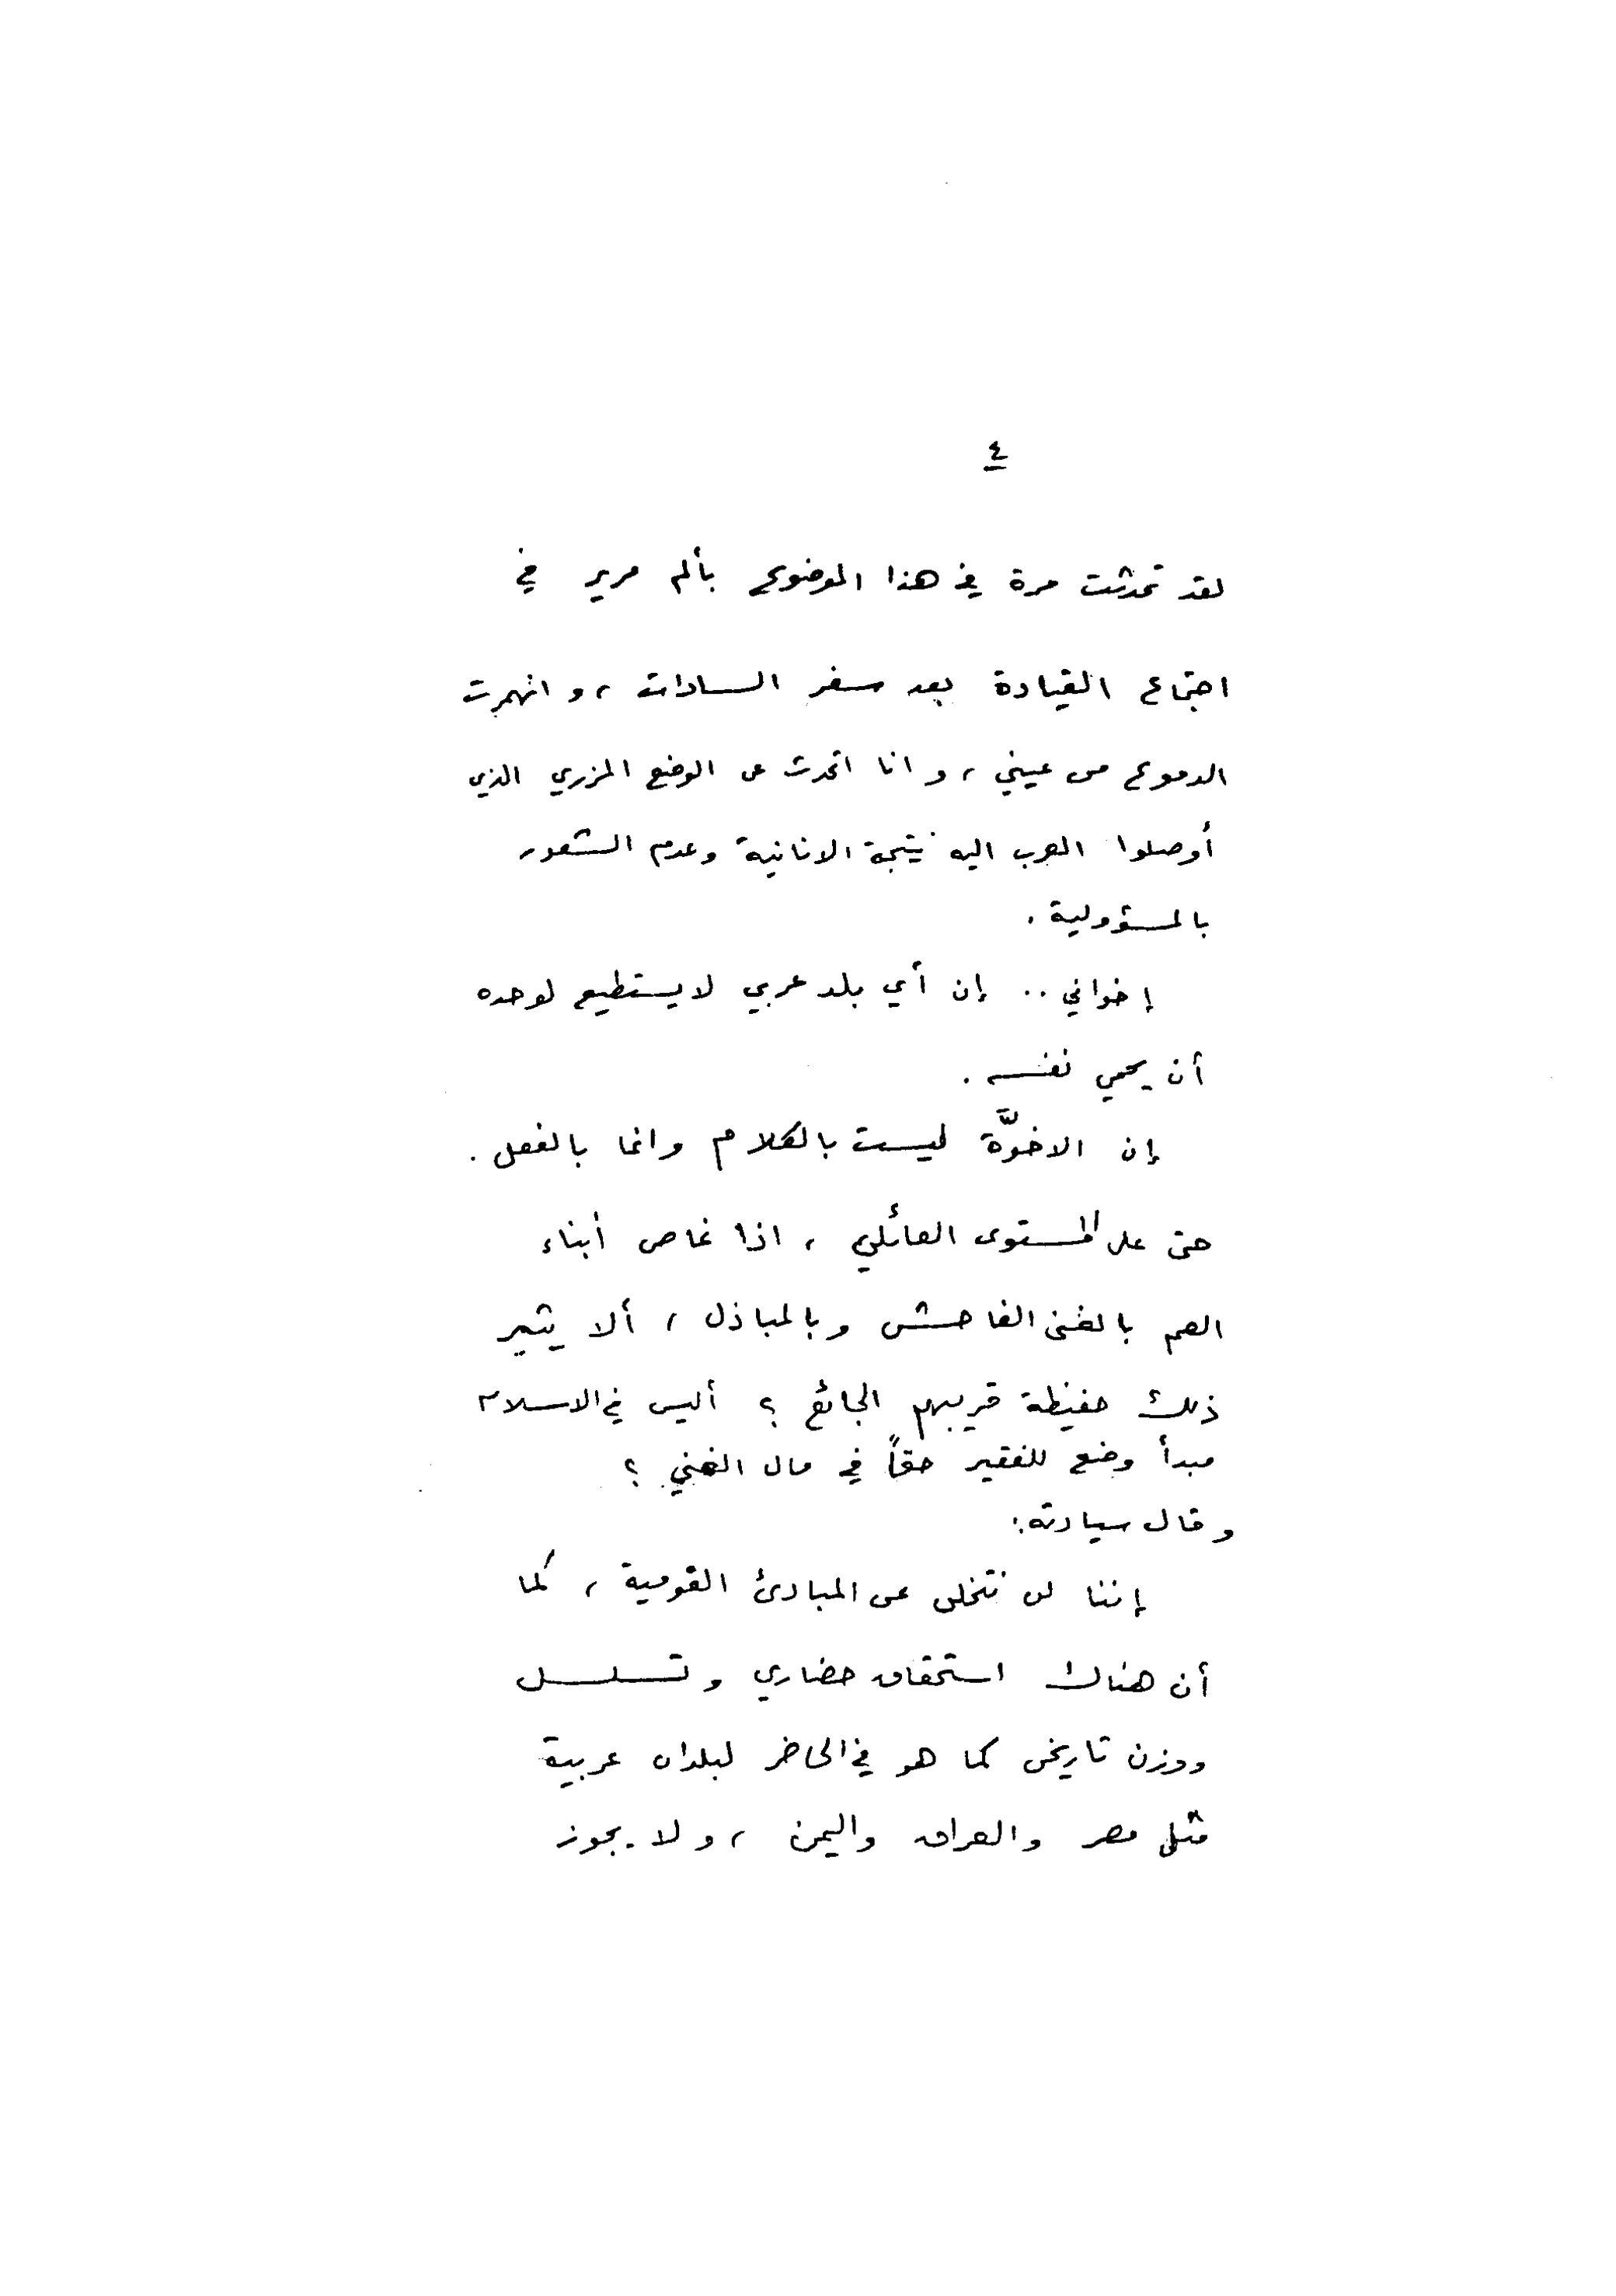 ٤
لقد تحدثت مرة في هذا الموضوع بألم مرير في
اجتماع القيادة بعد سفر السادات ، و انهمرت
الدموع من عيني ، و انا اتحدث عن الوضع المزري الذي
أوصلوا العرب اليه نتيجة الانانية وعدم الشعور
بالمسؤولية .
إخواني .. إن أي بلد عربي لا يستطيع لوحده
أن يحمي نفسه .
إن الاخوّة ليست بالكلام وانما بالفعل .
حتى على المستوى العائلي ، اذا غاص أبناء
العم بالغنى الفاحش وبالمباذل ، ألا يثير
ذلك حفيظة قريبهم الجائع ؟ أليس في الاسلام
مبدأ وضع للفقير حقاً في مال الغني ؟
وقال سيادته :
إننا لن نتخلى عن المبادئ القومية ، كما
أن هناك استحقاق حضاري وتسلسل
ووزن تاريخي كما هو في الحاضر لبلدان عربية
مثل مصر والعراق واليمن ، ولا يجوز